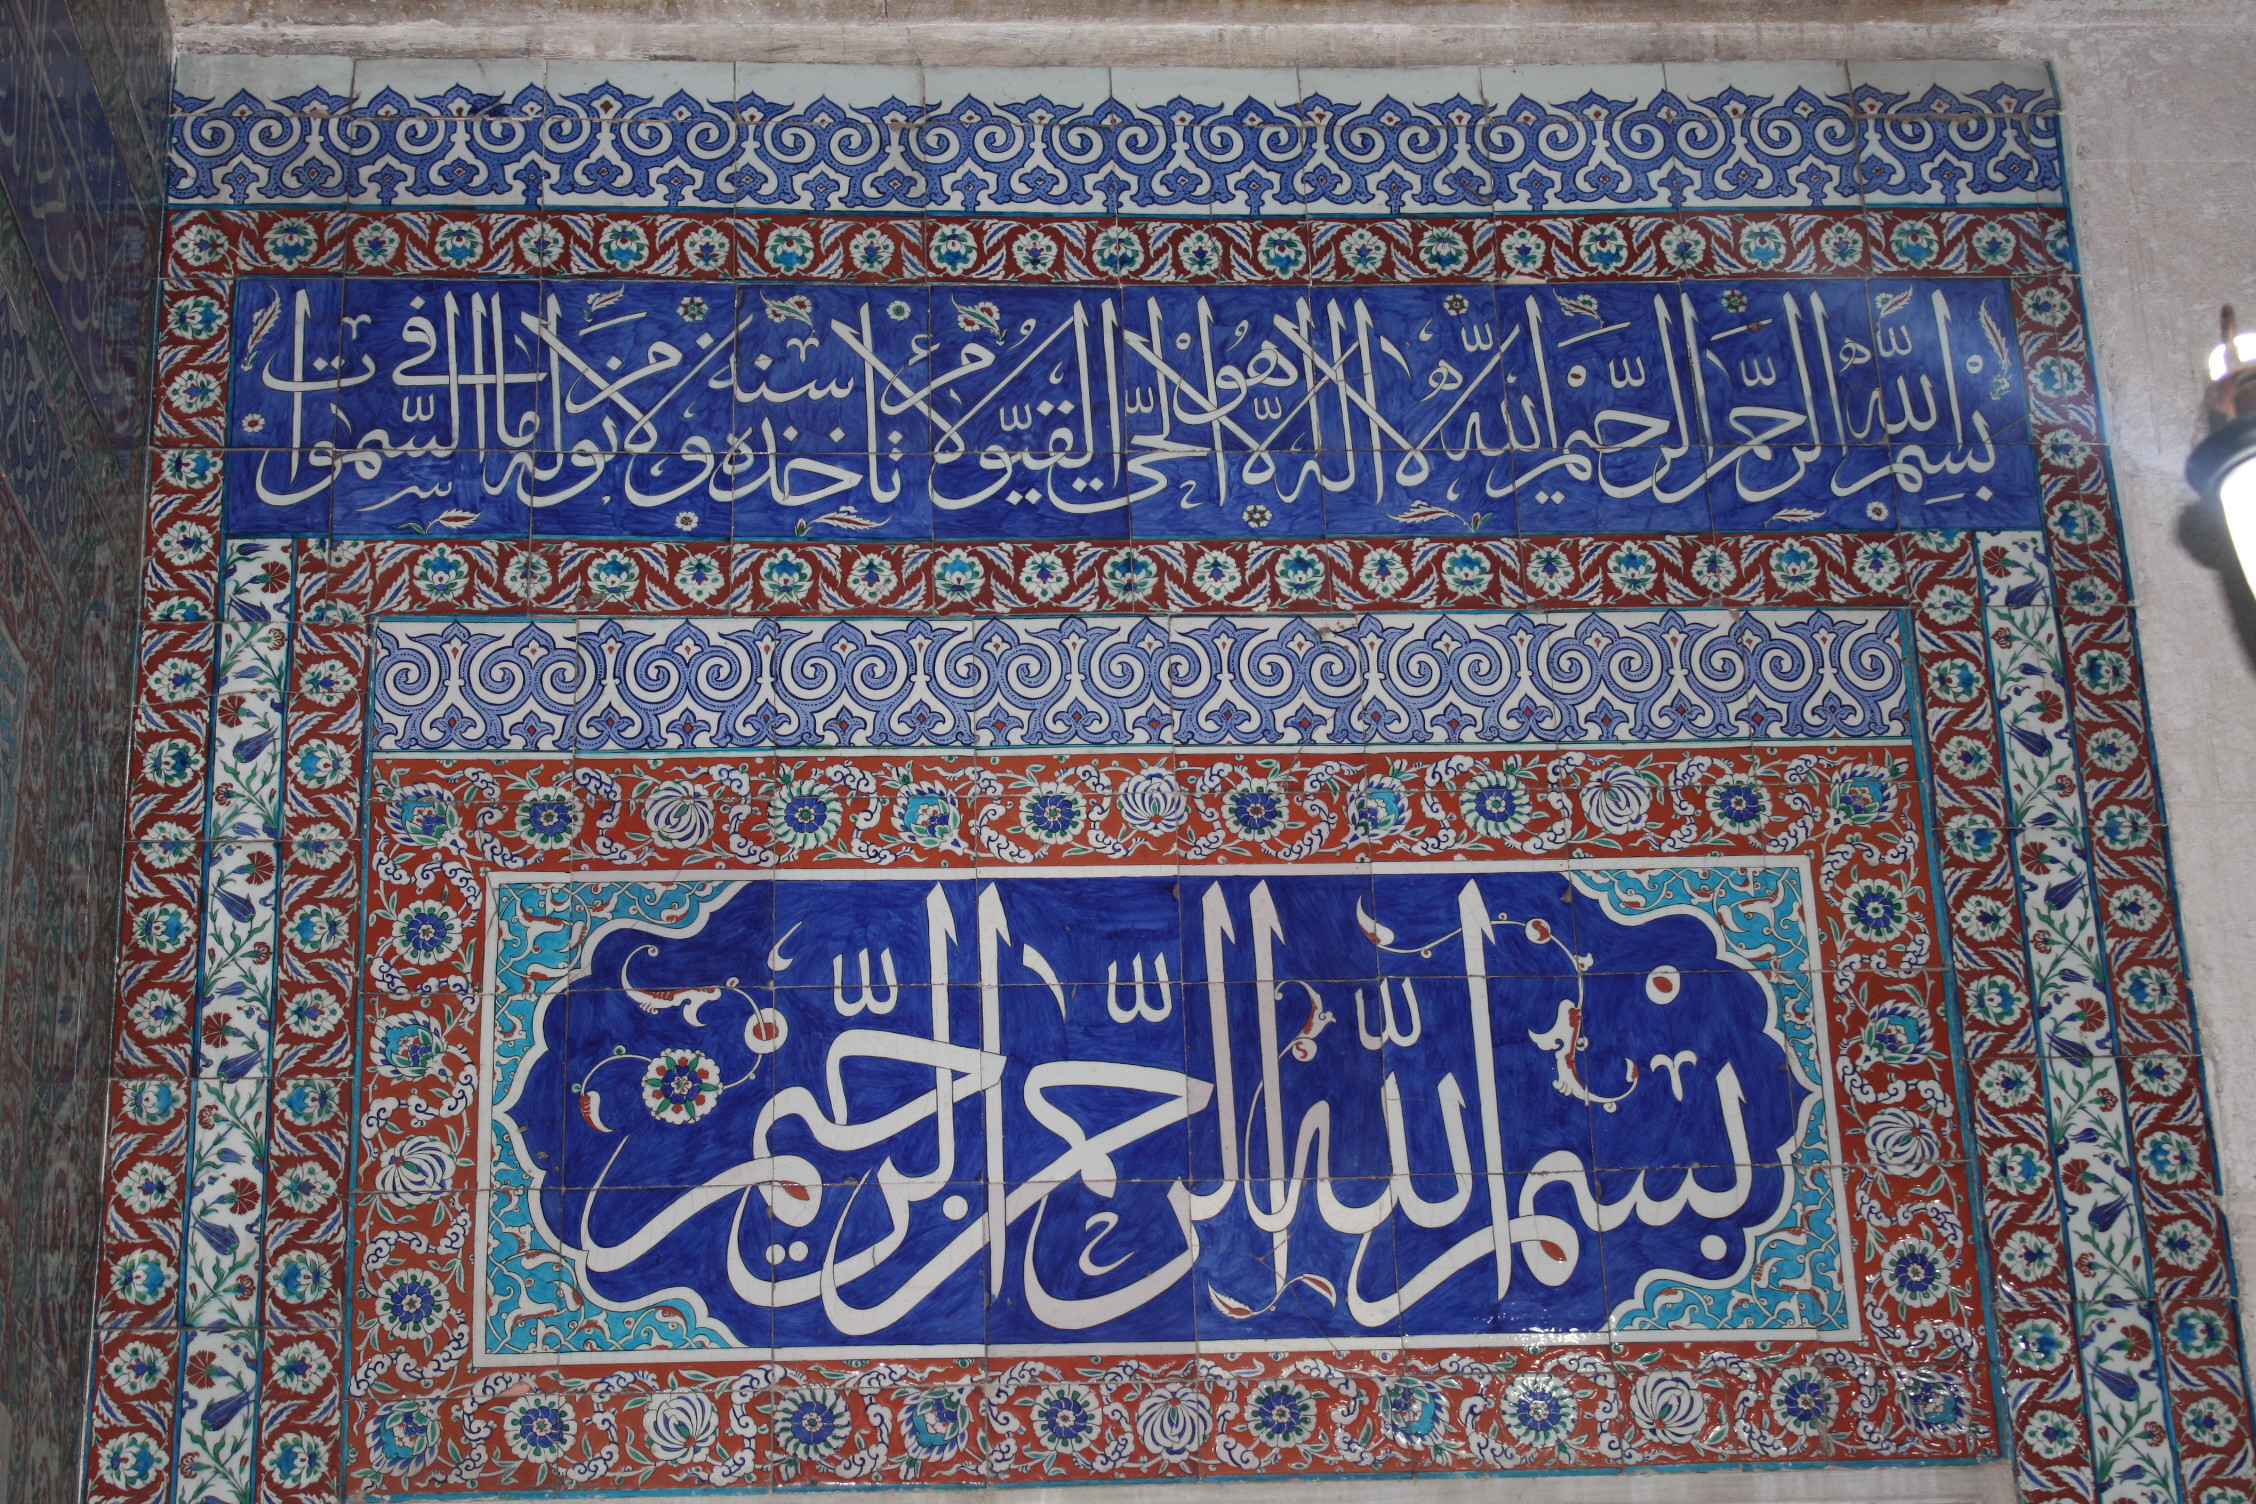 بسم الله الرحمن الرحيم الله لا اله الا هو الحي القيوم لا تأخذه سنة ولا نوم له ما في السموات
بسم الله الرحمن الرحيم